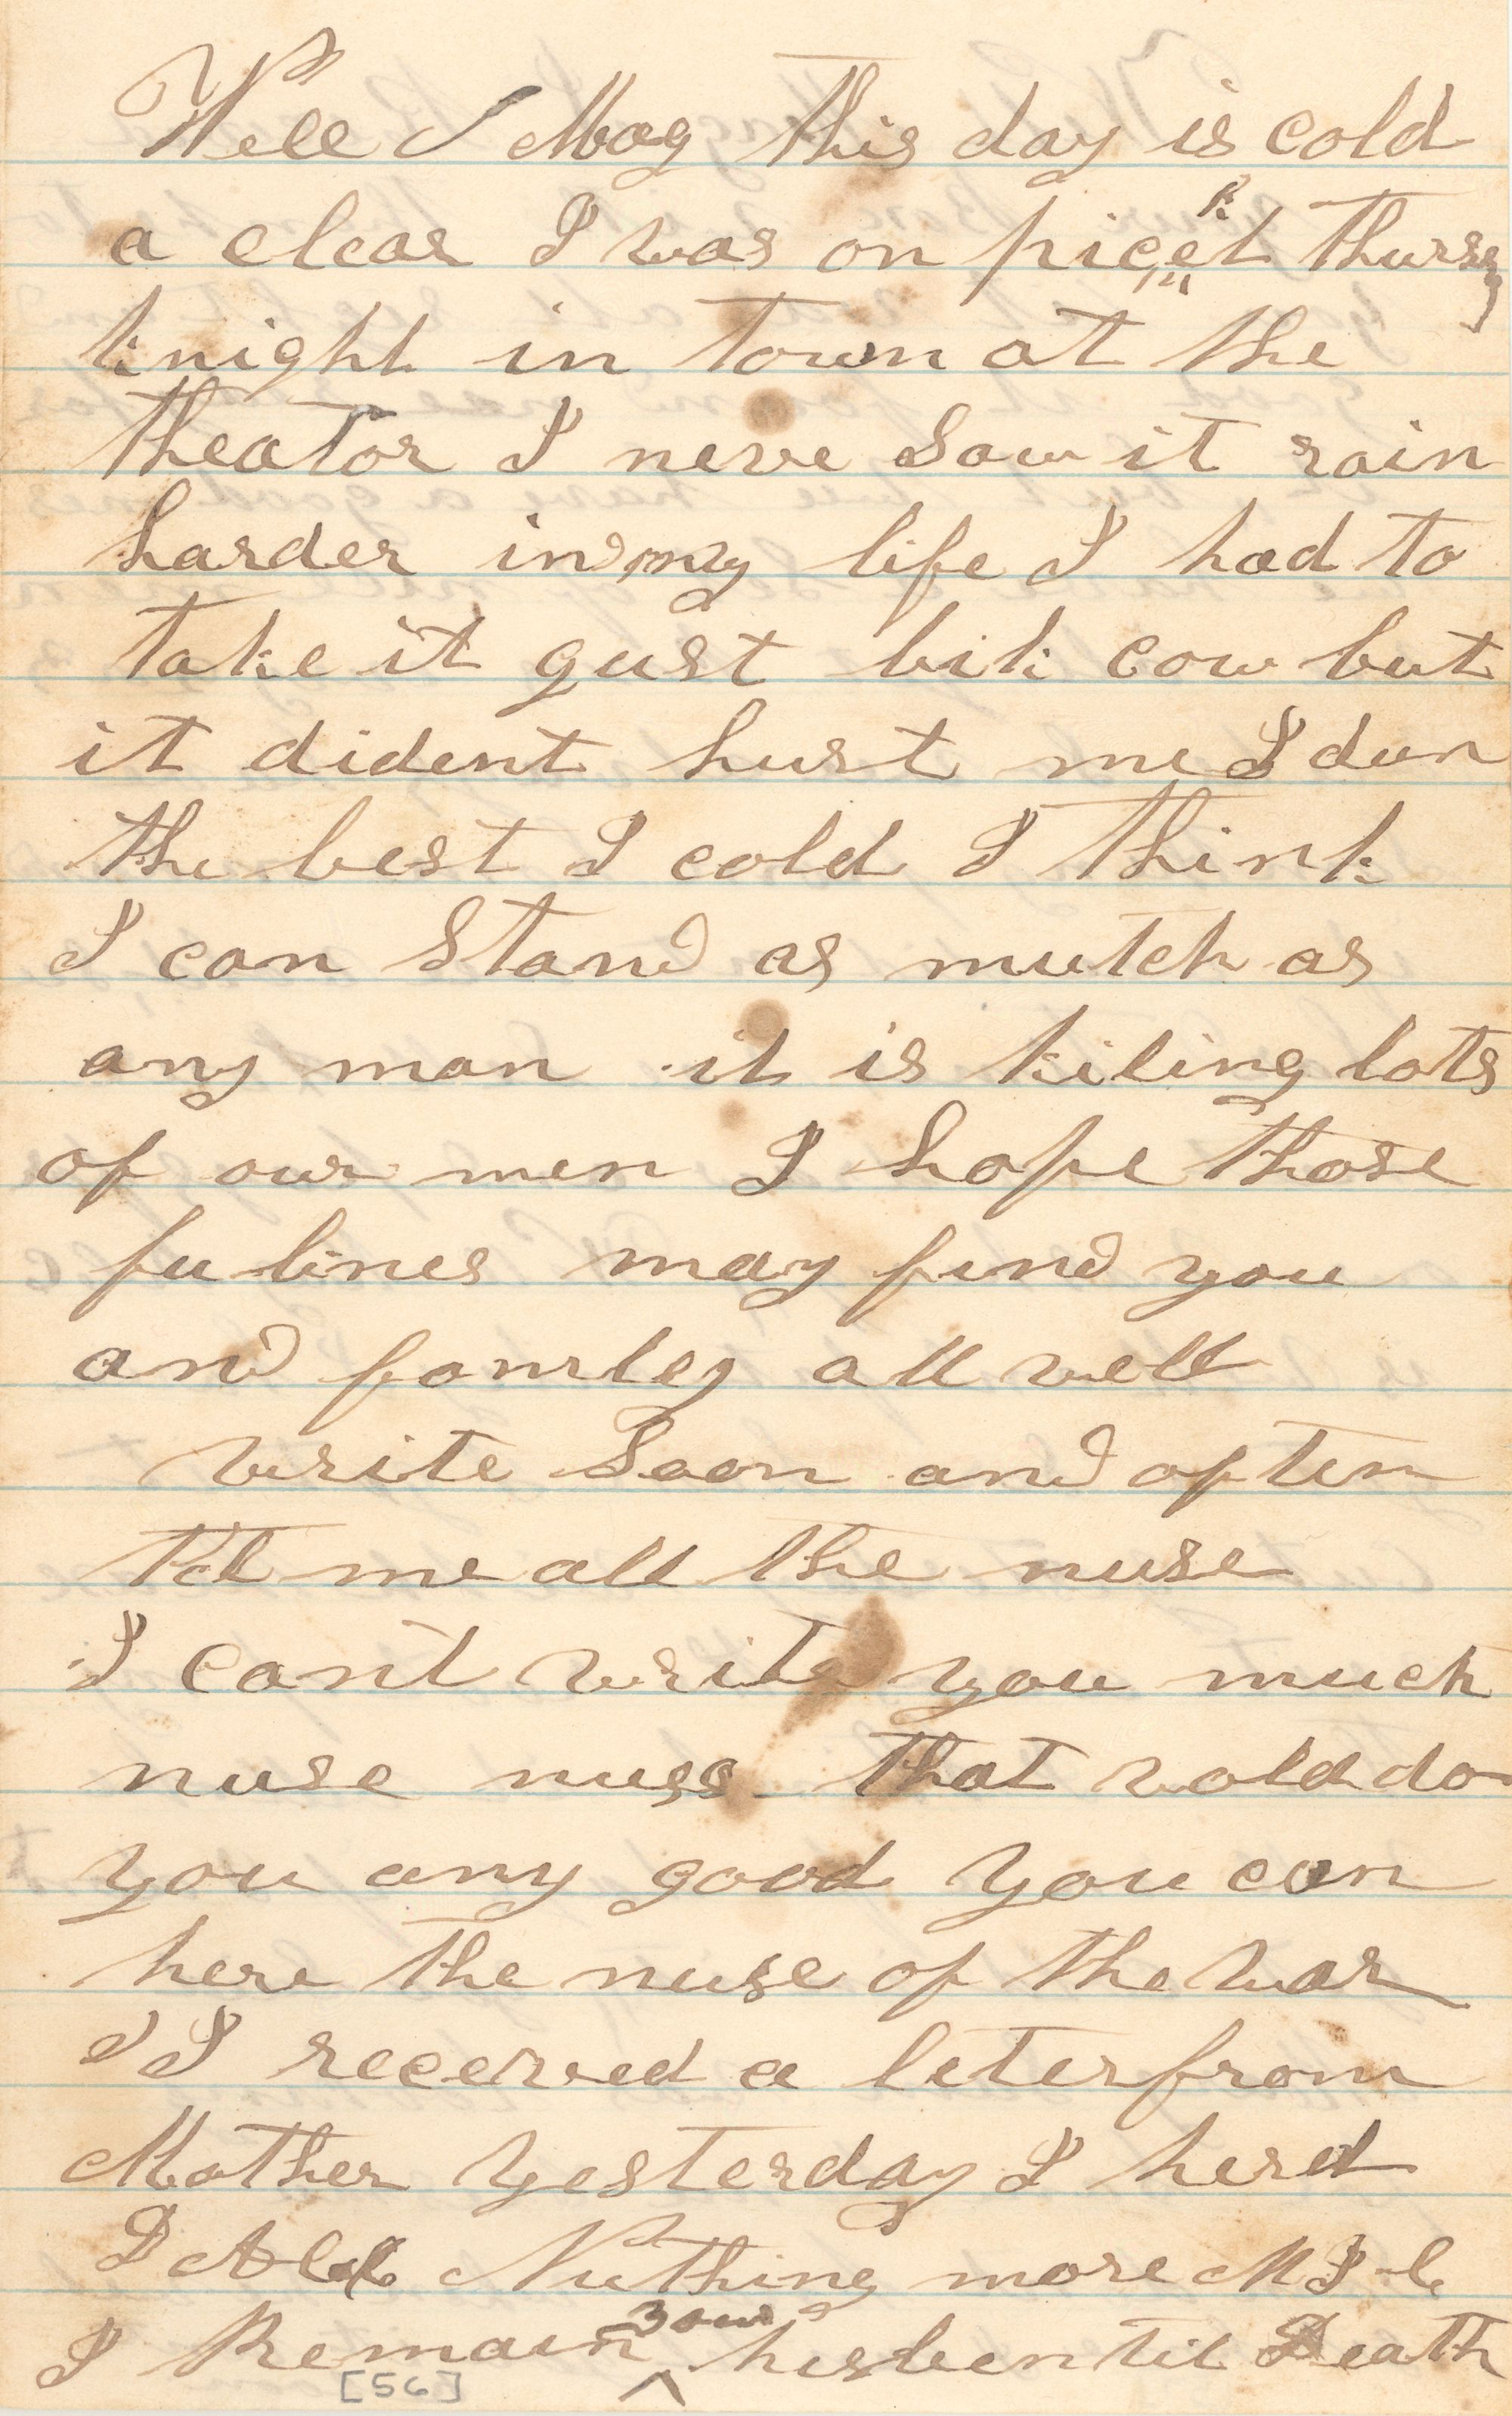 Well Mag this day is cold
a clear I was on picket thursy
knight in town at the
theator I neve Saw it rain
harder in my life I had to
take it gust lik cow but
it dident hurt me I dun
the best I cold I think
I can Stand as mutch as
any man it is kiling lots
of our men I hope those
fu lines may find you
and famley all well
write Soon and often
tel me all the nuse
I cant write you much
nuse nuss that wold do
you any good you can
here the nuse of the war
I received a leter from
Mother yesterday I herd
Nuthing more M J
I Remain your husben til Death
[56]